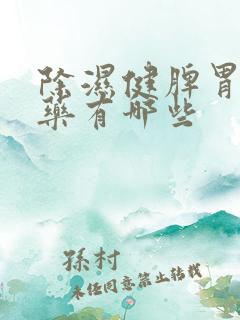 除濕健脾胃
藥有哪些
孫村
未经同意禁止转载